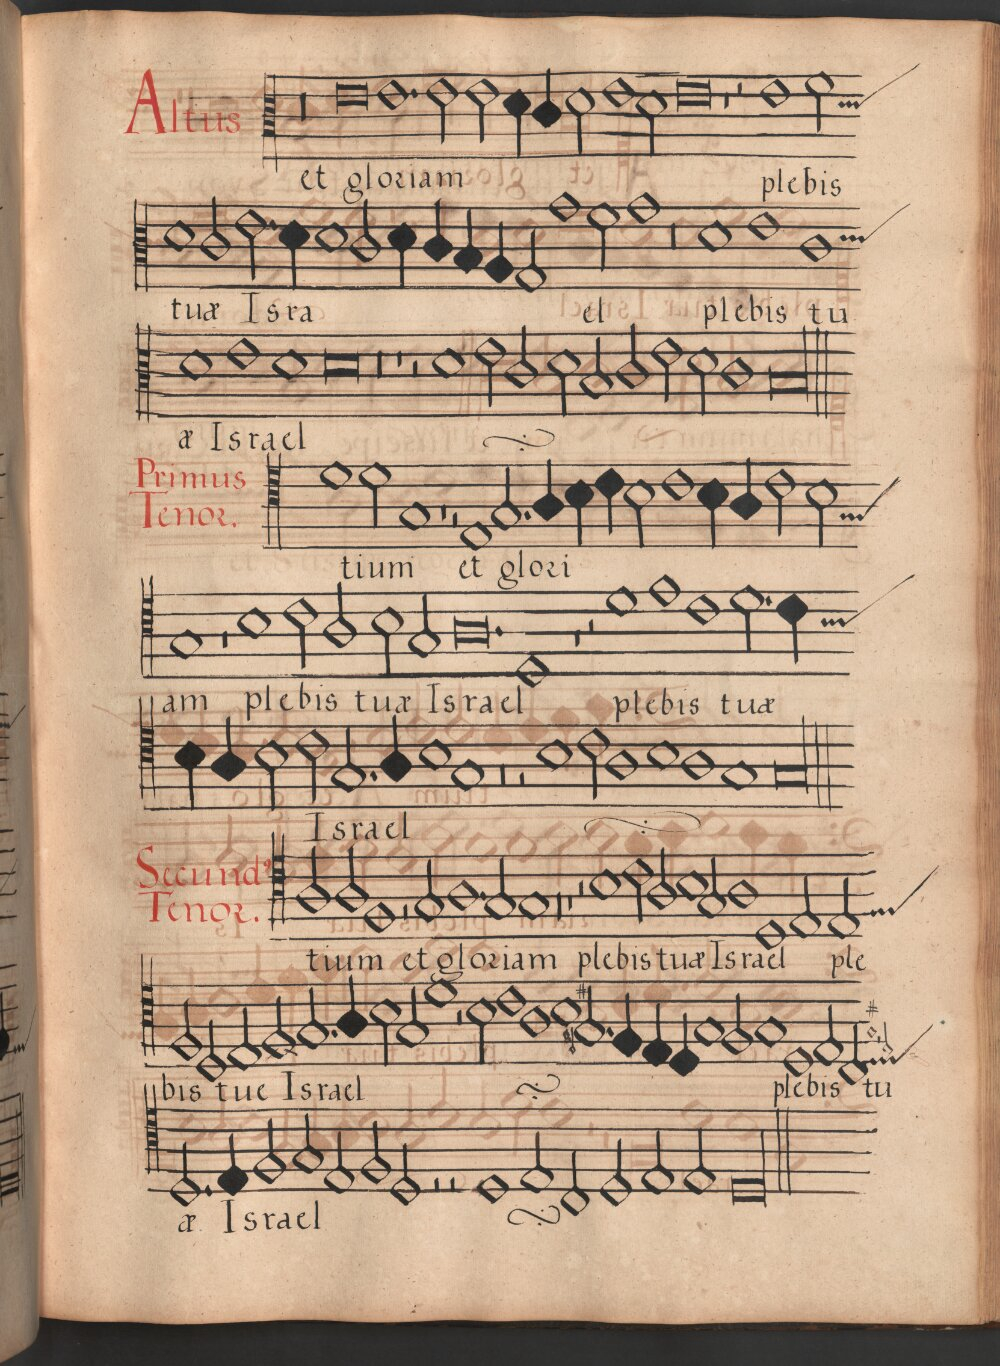 Altus
et gloriam plebis
tuæ Isra el plebis tu
æ Israel
Primus
Tenor.
tium et glori
am plebis tuæ Israel plebis tuæ
Israel
Secundꝰ
Tenor.
tium et gloriam plebis tuæ Israel ple
bis tue Israel plebis tu
æ Israel